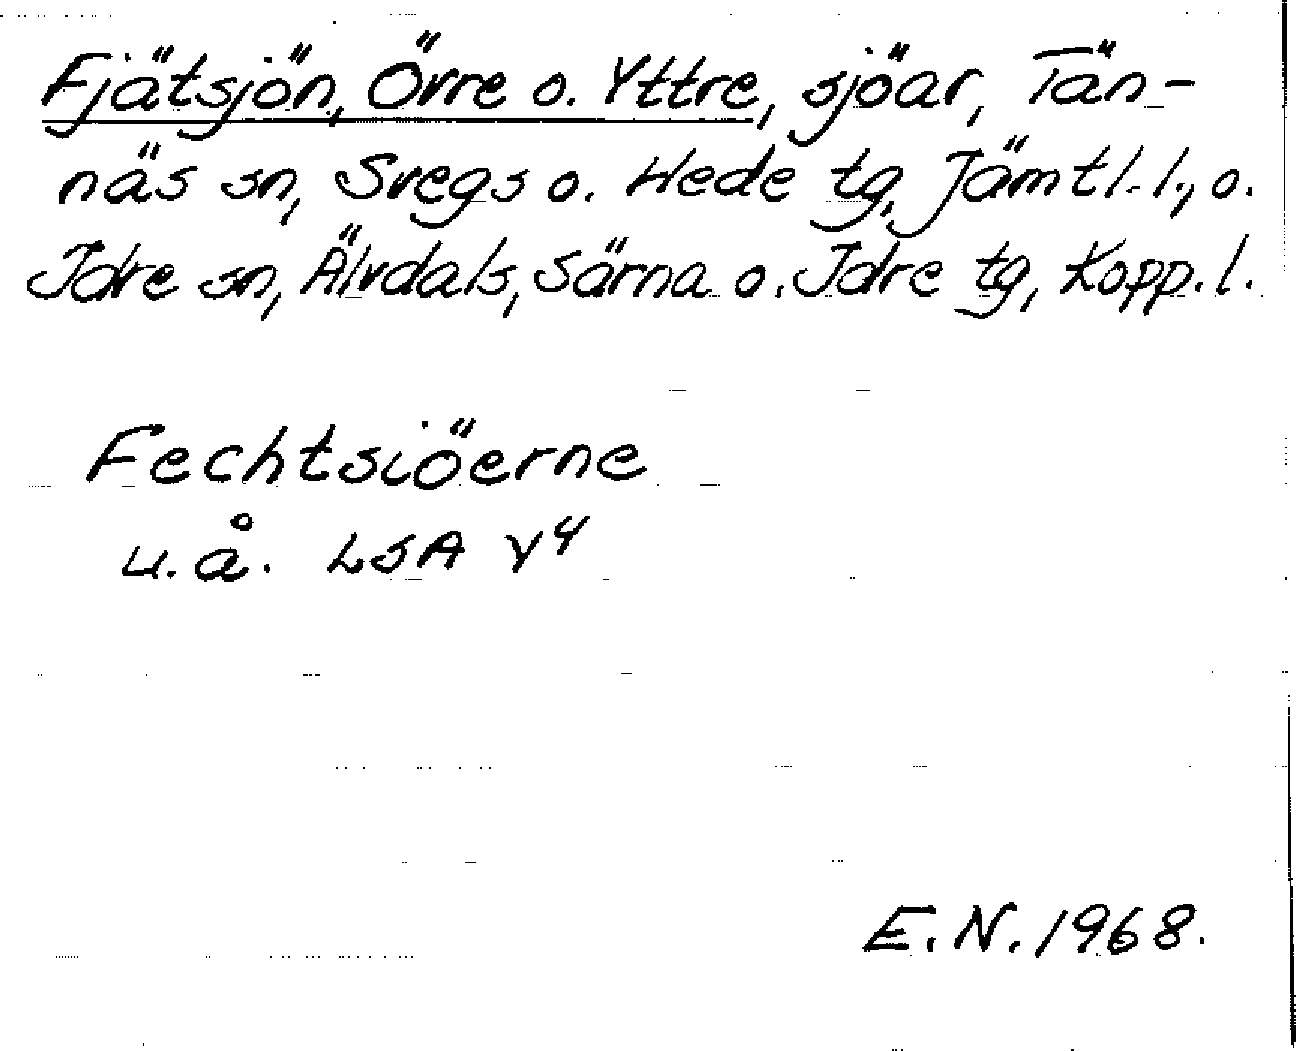 Fjätsjön, Övre o. Yttre, sjöar, Tän-
näs sn, Svegs o. Hede tg, Jämtl. l., o.
Idre sn, Älvdals, Särna o. Idre tg, Kopp. l.
Fechtsiöerne
u.å. LSA Y4
E.N. 1968.